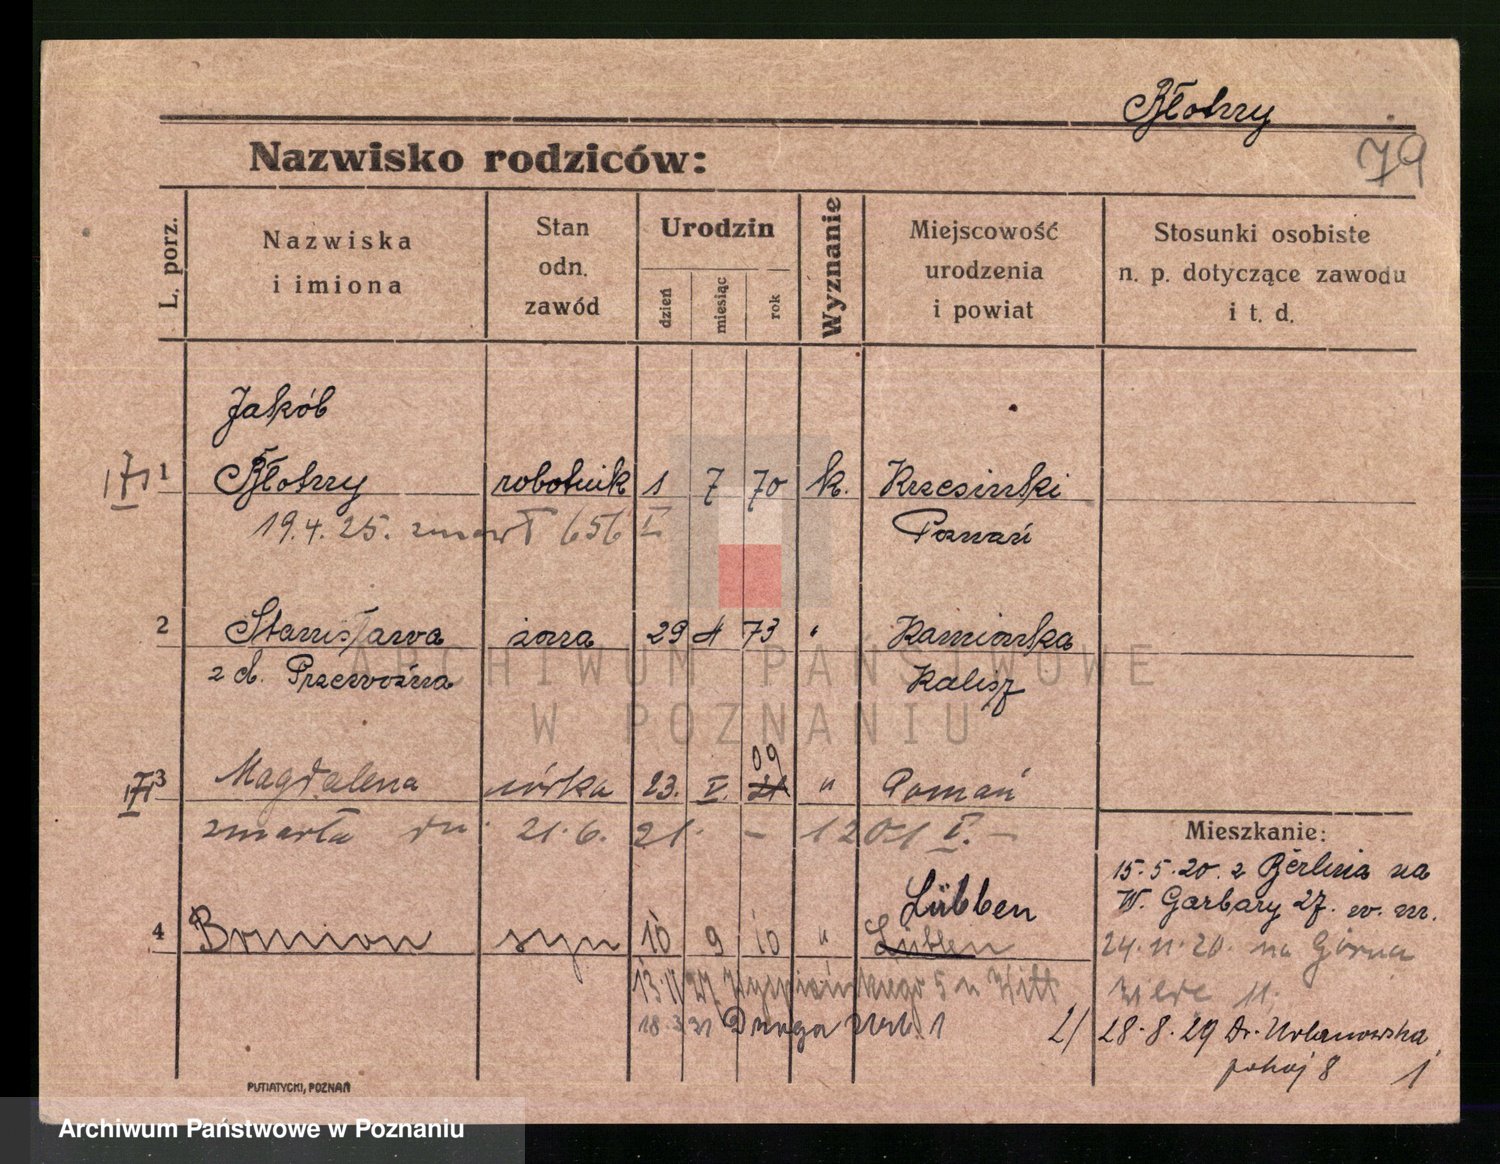 Błotny
79
Nazwisko rodziców:
L. porz.
Nazwiska
i imiona
Stan
odn.
zawód
Urodzin
dzień
miesiąc
rok
Wyznanie
Miejscowość
urodzenia
i powiat
Stosunki osobiste
n. p. dotyczące zawodu
i t. d.
Jakób
1 Błotny robotnik 1 7 70 k. Krzesinki
19.4.25. zmarł 656 I Poznań
2 Stanisława żona 29 4 73 " Kamionka
z d. Przewoźna Kalisz
09
3 Magdalena córka 23. V. 21 " Poznań
zmarła dn. 21.6.21. - 1201 I. -
Mieszkanie:
15.5.20. z Berlina na
W. Garbary 27. w. m.
Lübben
4 syn 10 9 10 " Lübben
24.11.20. na Górna
Wilde 11.
13.11.27 Wyspiańskiego 5 u Witt
18.3.31 Droga 1 2/
28.8.29 Dr. Urbanowska
pokój 8 1
PUTIATYCKI, POZNAŃ
ARCHIWUM PAŃSTWOWE
W POZNANIU
Archiwum Państwowe w Poznaniu